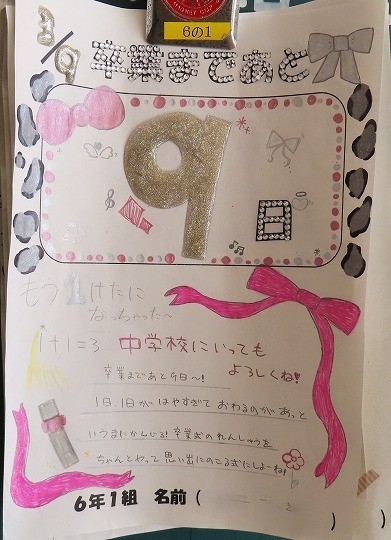 6の1
3/9 卒業まであと
9日
もう1けたに
なっちゃった〜
1+1=3 中学校にいっても
よろしくね!!
卒業まであと9日〜!
1日、1日が はやすぎて おわるのが あっと
いうまにかんじる! 卒業式のれんしゅうを
ちゃんとやって 思い出にのこる式にしよーね!
6年1組 名前 ( )